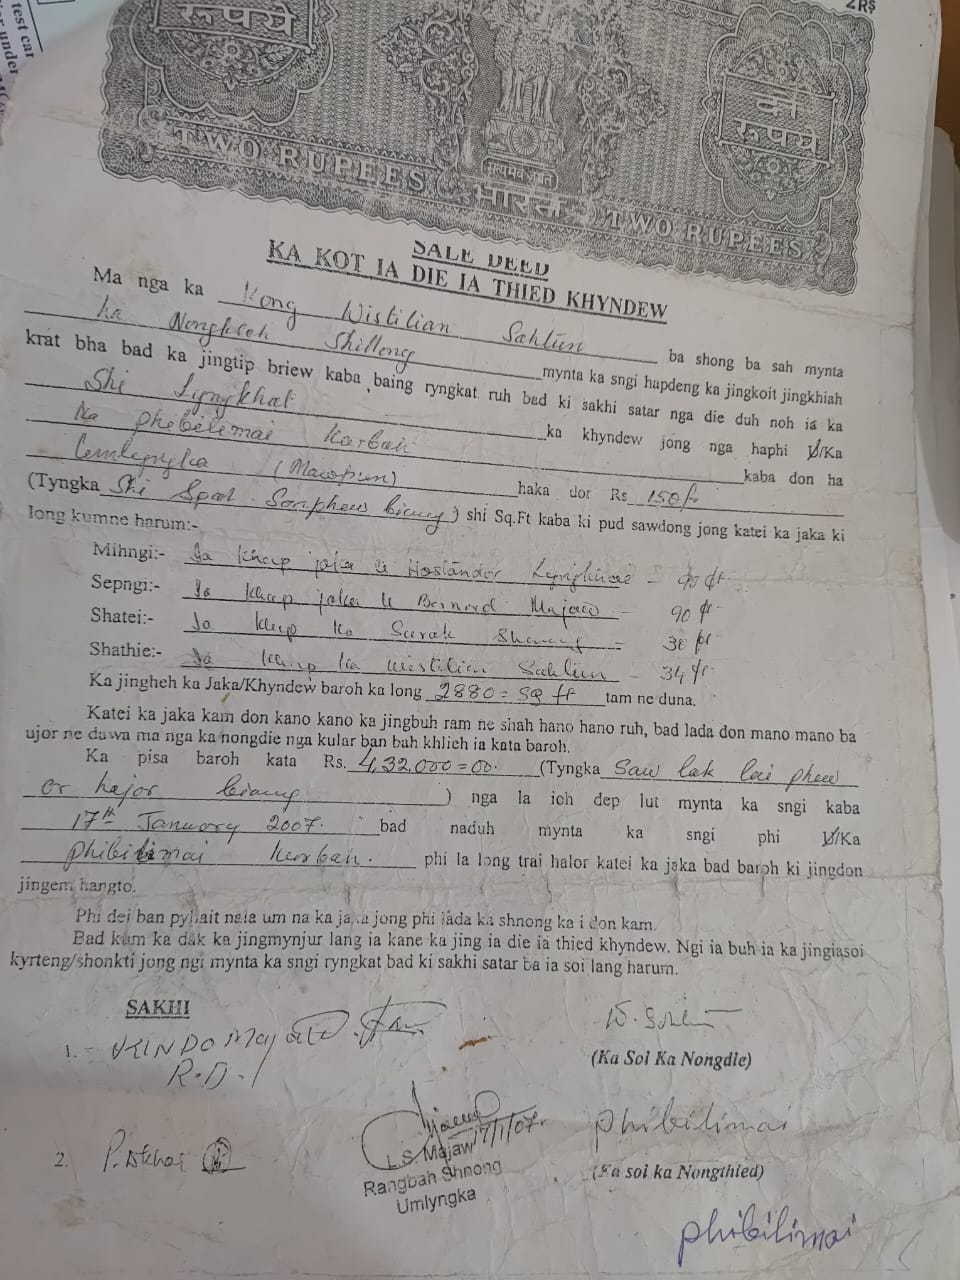 test car
under
2RS
रूपये
दो
रूपये
सत्यमेव जयते
TWO RUPEES भारत TWO RUPEES
SALE DEED
KA KOT IA DIE IA THIED KHYNDEW
Ma nga ka Kong Wistilian Sahlun ba shong ba sah mynta
ha Nongkseh Shillong mynta ka sngi hapdeng ka jingkoit jingkhiah
krat bha bad ka jingtip briew kaba baing ryngkat ruh bad ki sakhi satar nga die duh noh ia ka
Shi Lyngkhat ka khyndew jong nga haphi U/Ka
Ka phibilimai Karbah kaba don ha
Umlyngka (Mawpun) haka dor Rs 150/-
(Tyngka Shi Spah Sanphew biang) shi Sq.Ft kaba ki pud sawdong jong katei ka jaka ki
long kumne harum:-
Mihngi:- Ia khap jaka u Hostandor - 90 ft
Sepngi:- Ia khap jaka u Bernard Majaw - 90 ft
Shatei:- Ia khap ka Surok = 30 ft
Shathie:- Ia khap ka Wistilian Sahlun - 34 ft
Ka jingheh ka Jaka/Khyndew baroh ka long 2880 = sq ft tam ne duna.
Katei ka jaka kam don kano kano ka jingbuh ram ne shah hano hano ruh, bad lada don mano mano ba
ujor ne dawa ma nga ka nongdie nga kular ban bah khlieh ia kata baroh.
Ka pisa baroh kata Rs. 4,32,000=00. (Tyngka Saw lak lai phew
ar hajar biang) nga la ioh dep lut mynta ka sngi kaba
17th January 2007. bad naduh mynta ka sngi phi U/Ka
phibilimai Karbah. phi la long trai halor katei ka jaka bad baroh ki jingdon
jingem hangto.
Phi dei ban pyllait naia um na ka jaka jong phi lada ka shnong ka i don kam.
Bad kum ka dak ka jingmynjur lang ia kane ka jing ia die ia thied khyndew. Ngi ia buh ia ka jingiasoi
kyrteng/shonkti jong ngi mynta ka sngi ryngkat bad ki sakhi satar ba ia soi lang harum.
SAKHI
1. -
R.D.1
(Ka Soi Ka Nongdie)
17/1/07.
L.S. Majaw
Rangbah Shnong
Umlyngka
phibilimai
(Ka soi ka Nongthied)
2.
phibilimai